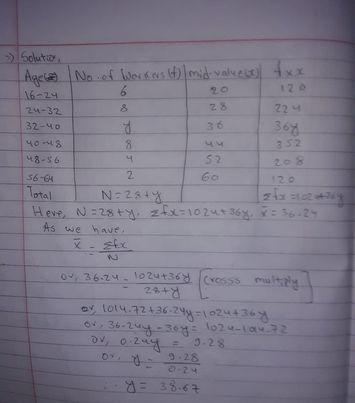 ⇒ Solution,
Age(x) | No. of Workers (f) | mid-value(x) | f×x
16-24 6 20 120
24-32 8 28 224
32-40 y 36 36y
40-48 8 44 352
48-56 4 52 208
56-64 2 60 120
Total N=28+y Σfx=1024+36y
Here, N=28+y, Σfx=1024+36y, x̄ = 36.24
As we have,
x̄ = Σfx/N
or, 36.24 = 1024+36y/28+y [crosss multiply]
or, 1014.72+36.24y=1024+36y
or, 36.24y-36y= 1024-1014.72
or, 0.24y = 9.28
or, y = 9.28/0.24
∴ y= 38.67